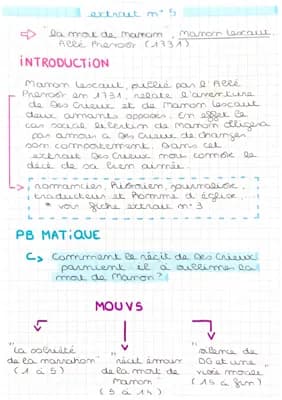 extrait n° 5
⇨ "la mort de Manon", Manon Lescaut,
Abbé Prévost (1731)
INTRODUCTION
Manon Lescaut, publié par l'Abbé
Prévost en 1731, relate l'aventure
de Des Grieux et de Manon Lescaut
deux amants opposés. En effet le
cas social libertin de Manon obligera
par amour à Des Grieux de changer
son comportement. Dans cet
extrait Des Grieux nous conte le
décè de sa bien aimée.
romancier, historien, journaliste,
traducteur et homme d'église.
* voir fiche extrait n° 3
PB MATIQUE
↳ Comment le récit de Des Grieux
parvient il à sublimer la
mort de Manon?
MOUVS
"la sobriété
de la narration"
(1 à 5)
"récit émouv
de la mort de
Manon"
(5 à 14)
"silence de
DG et une
vraie morale"
(15 à fin)